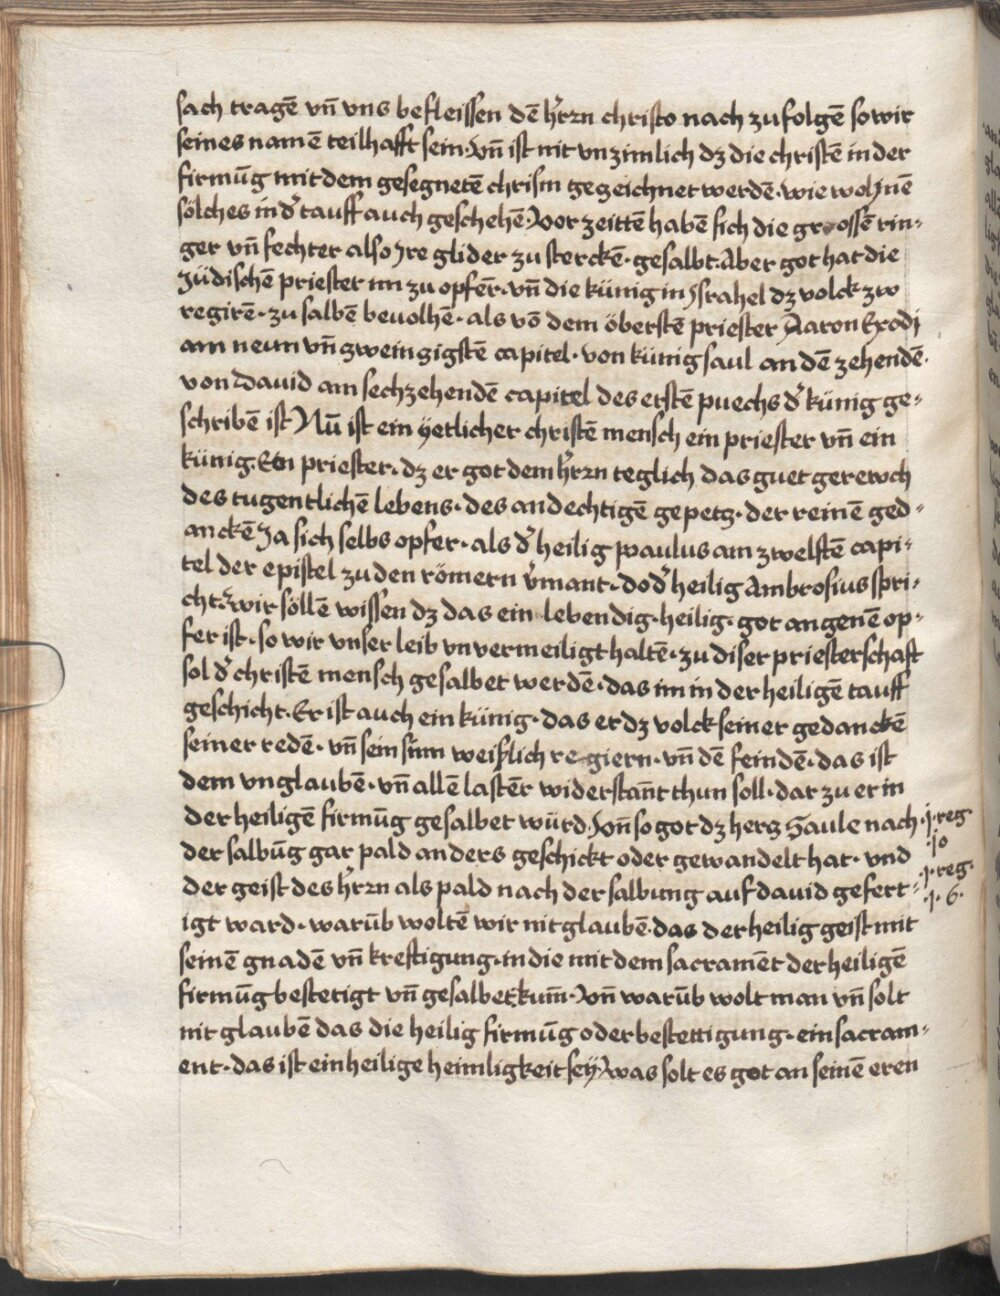 sach tragē vn̄ vns befleissen dē hr̄rn christo nach zufolgē so wir
seines namē teilhafft sein· Vn̄ ist nit vnzimlich dz die christē in der
firmūg mit dem gesegnetē chrism gezeichnet werdē· wie wol jnē
sölches in d' tauff auch geschehē· Vor zeittē haben sich die grossē rin-
ger vn̄ fechter also Jre glider zu sterckē· gesalbt· Aber got hat die
Jüdischē priester im zu opfēr· vn̄ die künig in Jsrahel dz volck zw
regirē· zu salbē beuolhē· als vō dem öberstē priester Aaron Exodj
am neun vn̄ zweinzigstē capitel· von künig saul an dē zehendē·
von Dauid am sechzehendē capitel des erstē puechs d' künig ge-
schribē ist Nū ist ein yetlicher christē mensch ein priester vn̄ ein
künig· Ein priester· dz er got dem hr̄rn teglich das guet gereuch
des tugentlichē lebens· des andechtigē gepetz· der reinē ged-
anckē Ja sich selbs opfer· als d' heilig paulus am zwelftē capi-
tel der epistel zu den römern v'mant· do d' heilig Ambrosius spri-
cht· wir söllē wissen dz das ein lebendig· heilig· got angenē op-
fer ist· so wir vnser leib vnvermeiligt haltē· zu diser priesterschaft
sol d' christē mensch gesalbet werdē· das im in der heiligē tauff
geschicht· Er ist auch ein künig· das er dz volck seiner gedanckē
seiner redē· vn̄ sein sinn weißlich regiern· vn̄ dē feindē· das ist
dem vnglaubē· vn̄ allē lastēr widerstan̄t thun soll· dar zu er in
der heiligē firmūg gesalbet würd· Vn̄ so got dz herz Saule nach ·j· reg
der salbūg gar pald anders geschickt oder gewandelt hat· vnd ·jo
der geist des hr̄rn als pald nach der salbung auf dauid gefert- ·j· reg·
igt ward· warūb woltē wir nit glaubē· das der heilig geist mit ·j· 6·
seinē gnadē vn̄ kreftigung· in die mit dem sacramēt der heiligē
firmūg bestetigt vn̄ gesalbet kum̄· Vn̄ warūb wolt man vn̄ solt
nit glaubē das die heilig firmūg oder bestettigung· ein sacram-
ent· das ist ein heilige heimligkeit sey was solt es got an seinē eren